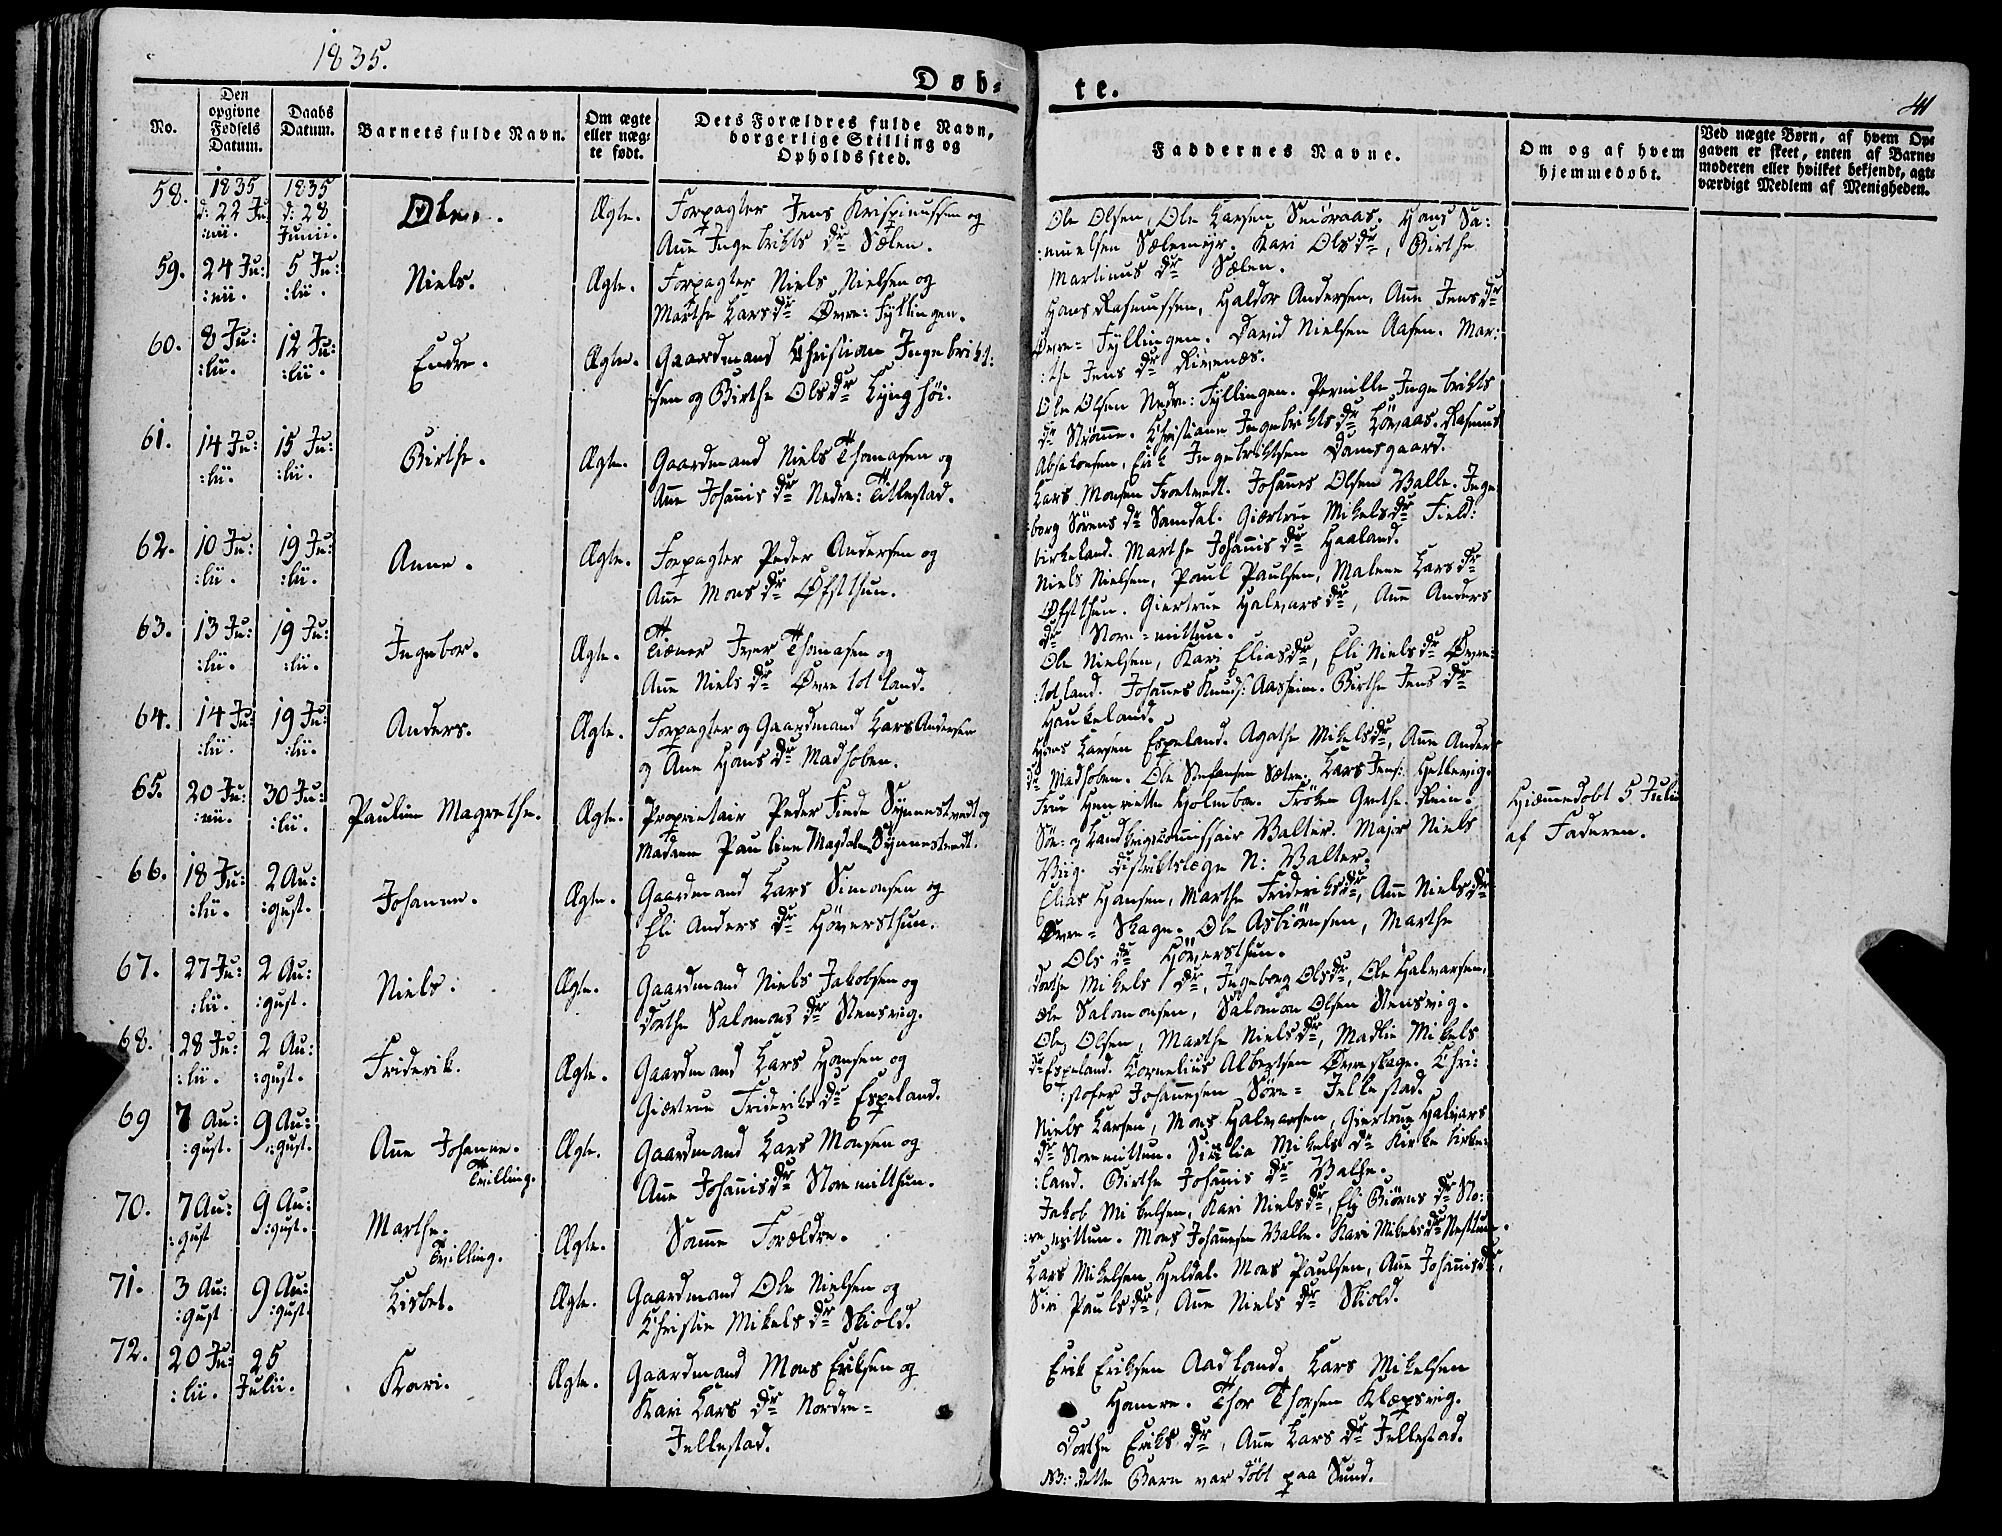 1835.
Døb-
te.
41
No.
Den
opgivne
Fødsels
Datum.
Daabs
Datum.
Barnets fulde Navn.
Om ægte
eller uæg-
te født.
Dets Forældres fulde Navn,
borgerlige Stilling og
Opholdssted.
Faddernes Navne.
Om og af hvem
hjemmedøbt.
Ved uægte Børn, af hvem Op-
gaven er skeet, enten af Barne-
moderen eller hvilket bekjendt, agt-
værdigt Medlem af Menigheden.
58.
1835
d: 22 Ju
:nii.
1835
d: 28
Junii.
Ole.
Ægte.
Forpagter Jens Krispinussen og
Anne Ingebrikts dr Sælen.
Ole Olsen, Ole Larsen Smöraas. Hans Sa:
:muelsen Sælemyr. Kari Olsdr, Birthe
Martinus dr Sælen.
59.
24 Ju:
:nii.
5 Ju:
:lii.
Niels.
Ægte.
Forpagter Niels Nielsen og
Marthe Larsdr Øvre: Fyllingen.
Hans Rasmussen, Haldor Andersen, Anne Jensdr
Øvre= Fyllingen. David Nielsen Aasen. Mar:
:the Jens dr Risnæs.
60.
8 Ju:
:lii.
12 Ju:
:lii.
Endre.
Ægte.
Gaardmand Christian Ingebrikt:
:sen og Birthe Olsdr Lynghöi.
Ole Olsen Nedre: Fyllingen. Pernille Ingebrikts
dr Strömme. Christiane Ingebriktsdr Lövaas. Rasmus
Absalonsen, Erik Ingebriktsen Damsgaard.
61.
14 Ju:
:lii.
15 Ju:
:lii.
Birthe.
Ægte.
Gaardmand Niels Thomasen og
Anne Johannis dr Nedre: Titlestad.
Lars Monsen Frotvedt. Johannes Olsen Valle. Inge
borg Sörens dr Samdal. Giertrue Mikelsdr Field:
birkeland. Marthe Johannis dr Haaland.
62.
10 Ju:
:lii.
19 Ju:
:lii.
Anne.
Ægte.
Forpagter Peder Andersen og
Anne Mons dr Øfstthun.
Niels Nielsen, Paul Paulsen, Malene Larsdr
Øfstthun. Giertrue Halvarsdr, Anne Anders
dr Store=mittun.
63.
13 Ju:
:lii.
19 Ju:
:lii.
Ingebor.
Ægte.
Tiæner Iver Thomasen og
Anne Niels dr Øvre totland.
Ole Nielsen, Kari Eliasdr, Eli Nielsdr Øvre=
:totland. Johannes Knuds: Aasheim. Birthe Jens dr
Haukeland.
64.
14 Ju:
:lii.
19 Ju:
:lii.
Anders.
Ægte.
Forpagter og Gaardmand Lars Andersen
og Ane Hansdr Madhoben.
Hans Larsen Espeland. Agathe Mikelsdr, Anne Anders
dr Madhoben. Ole Stefansen Sætre. Lars Jens: Hetlevig.
65.
20 Ju:
:nii.
30 Ju:
:lii.
Pauline Magrethe.
Ægte.
Proprietair Peder Finde Synnestvedt og
Madam Pauline Magdalene Synnestvedt.
Frue Henriette Holmboe. Fröken Grethe Rein.
Söe= og Landkrigscommissair Walter. Major Niels
Wiig. Distriktslæge N: Walter.
Hiæmmedöbt 5 Julii
af Faderen.
66.
18 Ju:
:lii.
2 Au:
:gust.
Johanne.
Ægte.
Gaardmand Lars Simonsen og
Eli Anders dr Höversthun.
Elias Hansen, Marthe Frideriksdr, Anne Nielsdr
Øvre= Skage. Ole Asbiörnsen, Marthe
Ols dr Höversthun.
67.
27 Ju:
:lii.
2 Au:
:gust.
Niels.
Ægte.
Gaardmand Niels Jakobsen og
Dorthe Salomons dr Stensvig.
Dorthe Mikels dr, Ingeborg Olsdr, Ole Halvarsen,
Ole Salomonsen, Salomon Olsen Stensvig.
68.
28 Ju:
:lii.
2 Au:
:gust.
Friderik.
Ægte.
Gaardmand Lars Hansen og
Giertrue Frideriksdr Espeland.
Ole Olsen, Marthe Nielsdr, Madlie Mikels
dr Espeland. Kornelius Albertsen Øvreskage. Chri:
:stofer Johannesen Söre= Jellestad.
69
7 Au:
:gust.
9 Au:
:gust.
Anne Johanne.
Tvilling.
Ægte.
Gaardmand Lars Monsen og
Anne Johannisdr Storemitthun.
Niels Larsen, Mons Halvarsen, Giertrue Halvars
dr Storemittun. Sicilia Mikels dr Kirkebirke:
:land. Birthe Johannis dr Valhe.
70.
7 Au:
:gust
9 Au:
:gust.
Marthe.
Tvilling.
Ægte.
Samme Forældre.
Jakob Mikelsen, Kari Nielsdr, Eli Biörns dr Sto:
:re mittun. Mons Johannesen Valle. Kari Mikelsdr Nesttun.
71.
3 Au:
:gust
9 Au:
:gust
Lisbet.
Ægte.
Gaardmand Ole Nielsen og
Christie Mikels dr Skiold.
Lars Mikelsen Heldal. Mons Paulsen, Anne Johannisdr,
Siri Paulsdr, Anne Niels dr Skiold.
72.
20 Ju:
:lii.
25
Julii.
Kari.
Ægte.
Gaardmand Mons Eriksen og
Kari Lars dr Nordre=
Jellestad.
Erik Eriksen Aadland. Lars Mikelsen
Hamre. Thor Thorsen Klæpsvig.
Dorthe Eriks dr, Anne Lars dr Jellestad.
NB: dette Barn var döbt paa Sund.